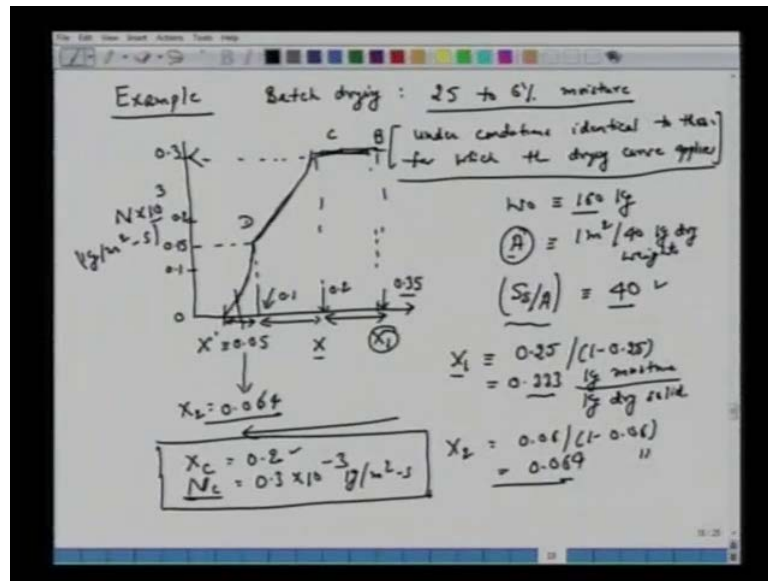 File Edit View Insert Actions Tools Help
Example Batch drying : 25 to 6% moisture
[under conditions identical to those
for which the drying curve applies]
C B
0.3
N×10³
(kg/m²-s)
0.2
D
0.15
0.1
0
0.1 0.2 0.35
X* = 0.05 X X₁
X₂ = 0.064
X_C = 0.2
N_C = 0.3 × 10⁻³ kg/m²-s
W₀ ≡ 160 kg
A ≡ 1m²/40 kg dry
weight
(S_S/A) ≡ 40
X₁ ≡ 0.25/(1-0.25)
= 0.333 kg moisture
kg dry solid
X₂ = 0.06/(1-0.06)
= 0.064 "